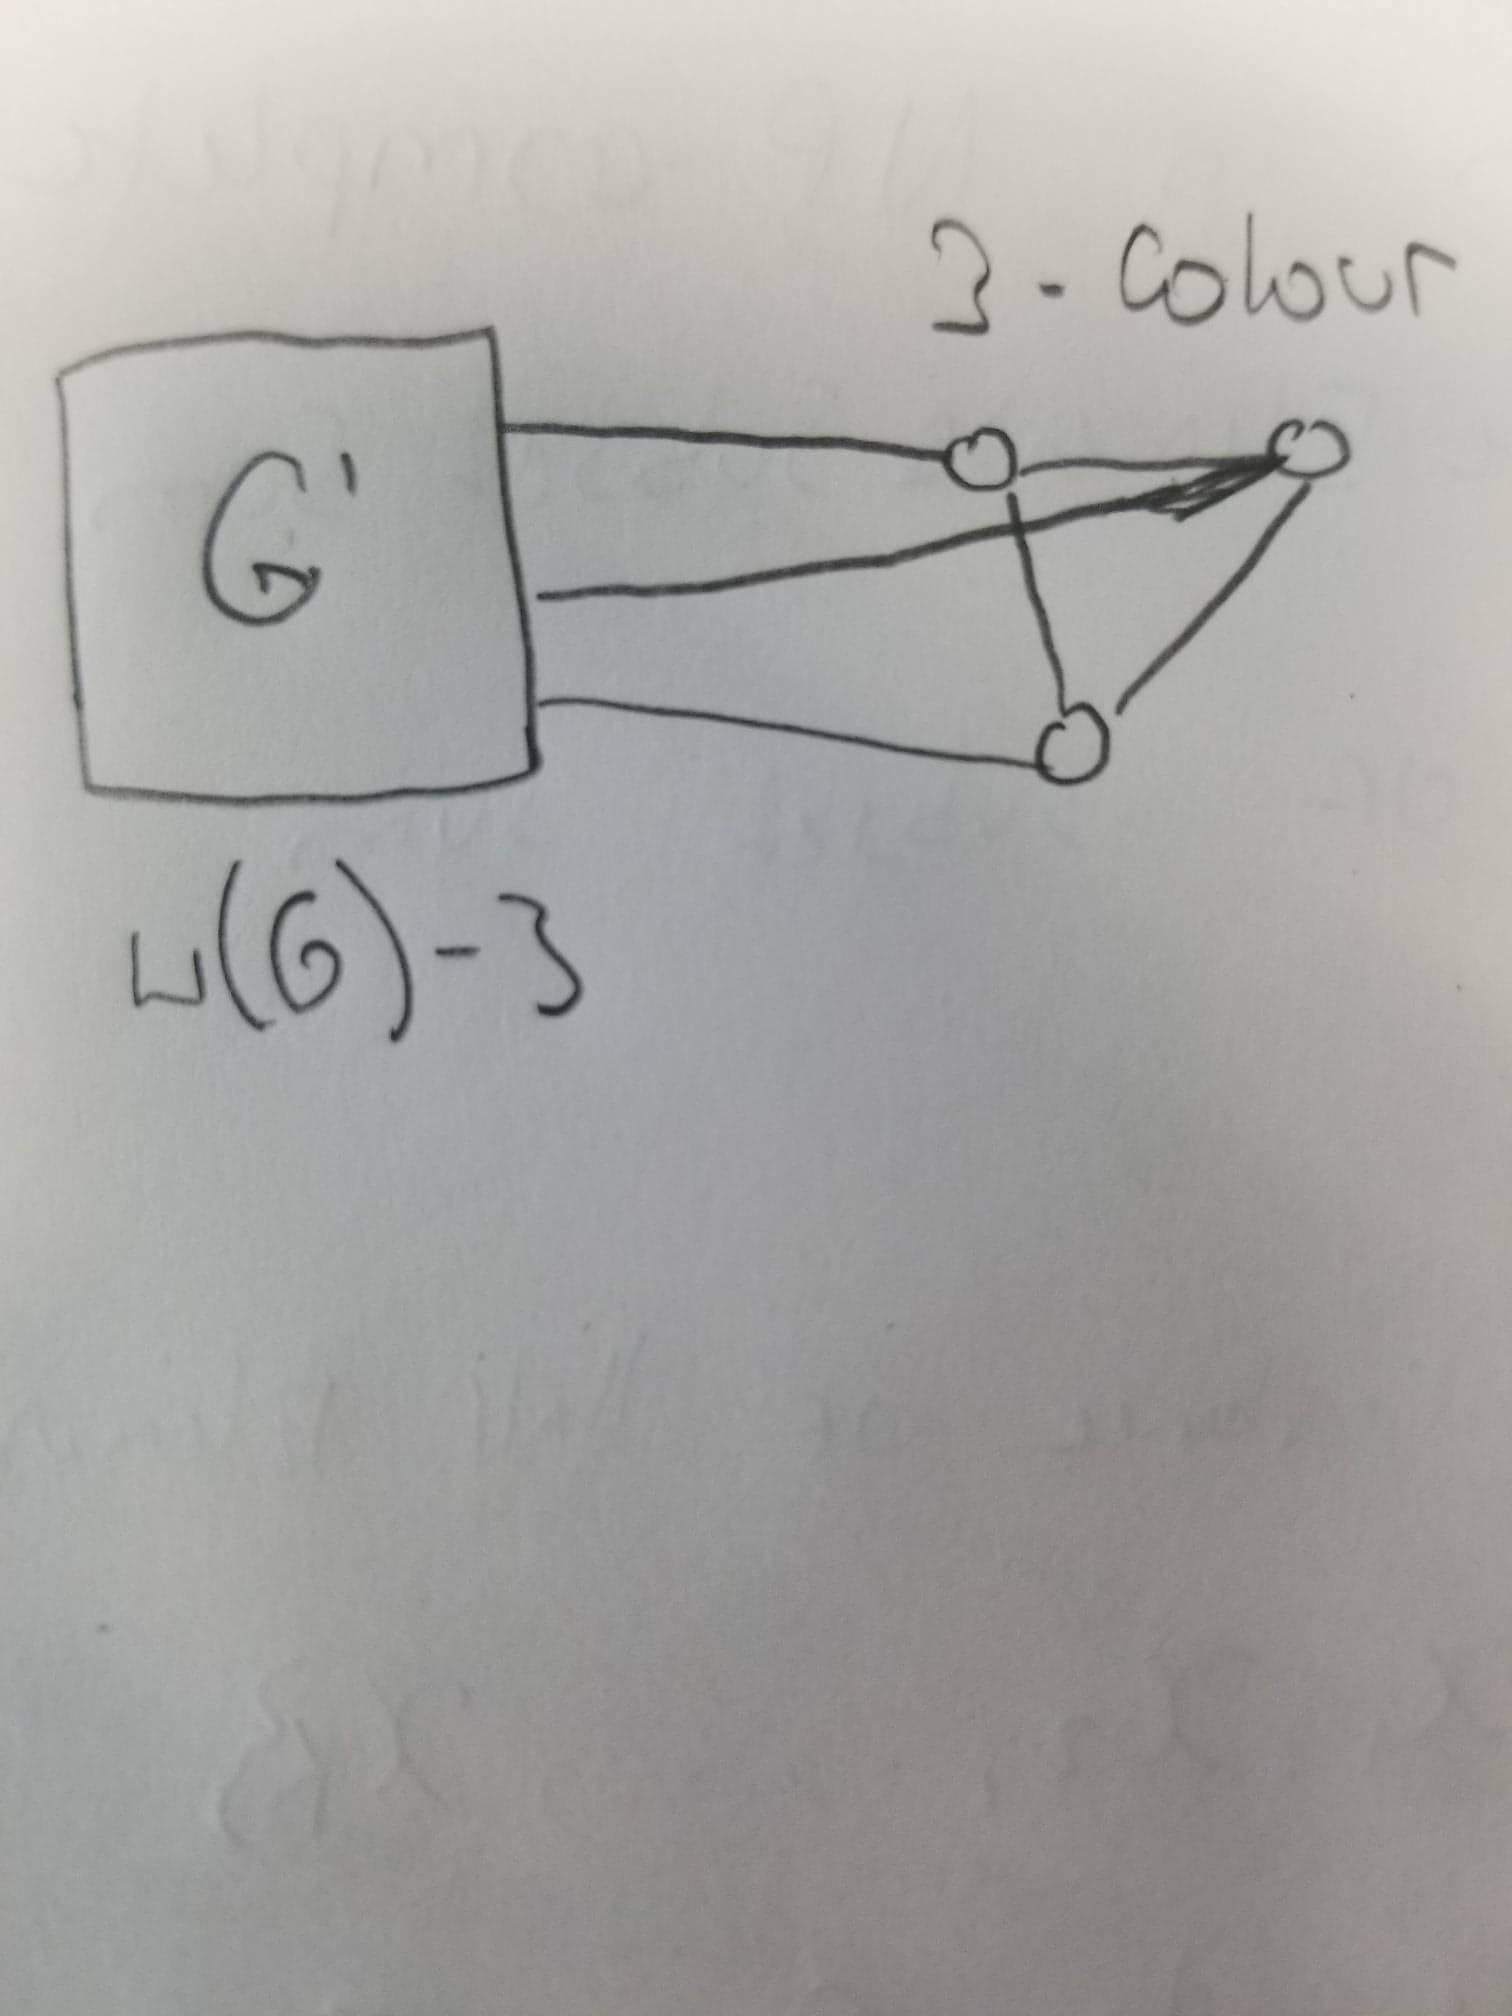 3 - Colour
G'
ω(G) - 3